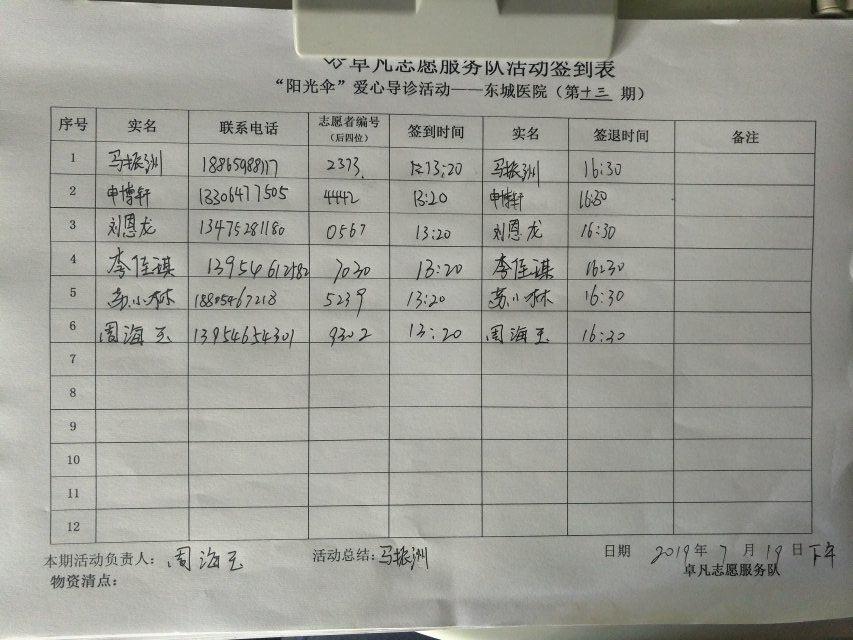 卓凡志愿服务队活动签到表
“阳光伞”爱心导诊活动——东城医院（第十三期）
序号 实名 联系电话 志愿者编号（后四位） 签到时间 实名 签退时间 备注
1 马振洲 2373 13:20 马振洲 16:30
2 申博轩 13306477505 4442 13:20 申博轩 16:30
3 刘恩龙 13475281180 0567 13:20 刘恩龙 16:30
4 李佳琪 13954612582 7030 13:20 李佳琪 16:30
5 苏小林 18805467218 5239 13:20 苏小林 16:30
6 周海玉 13954654301 9302 13:20 周海玉 16:30
7
8
9
10
11
12
本期活动负责人：周海玉 活动总结：马振洲 日期 2019年7月19日下午
物资清点： 卓凡志愿服务队